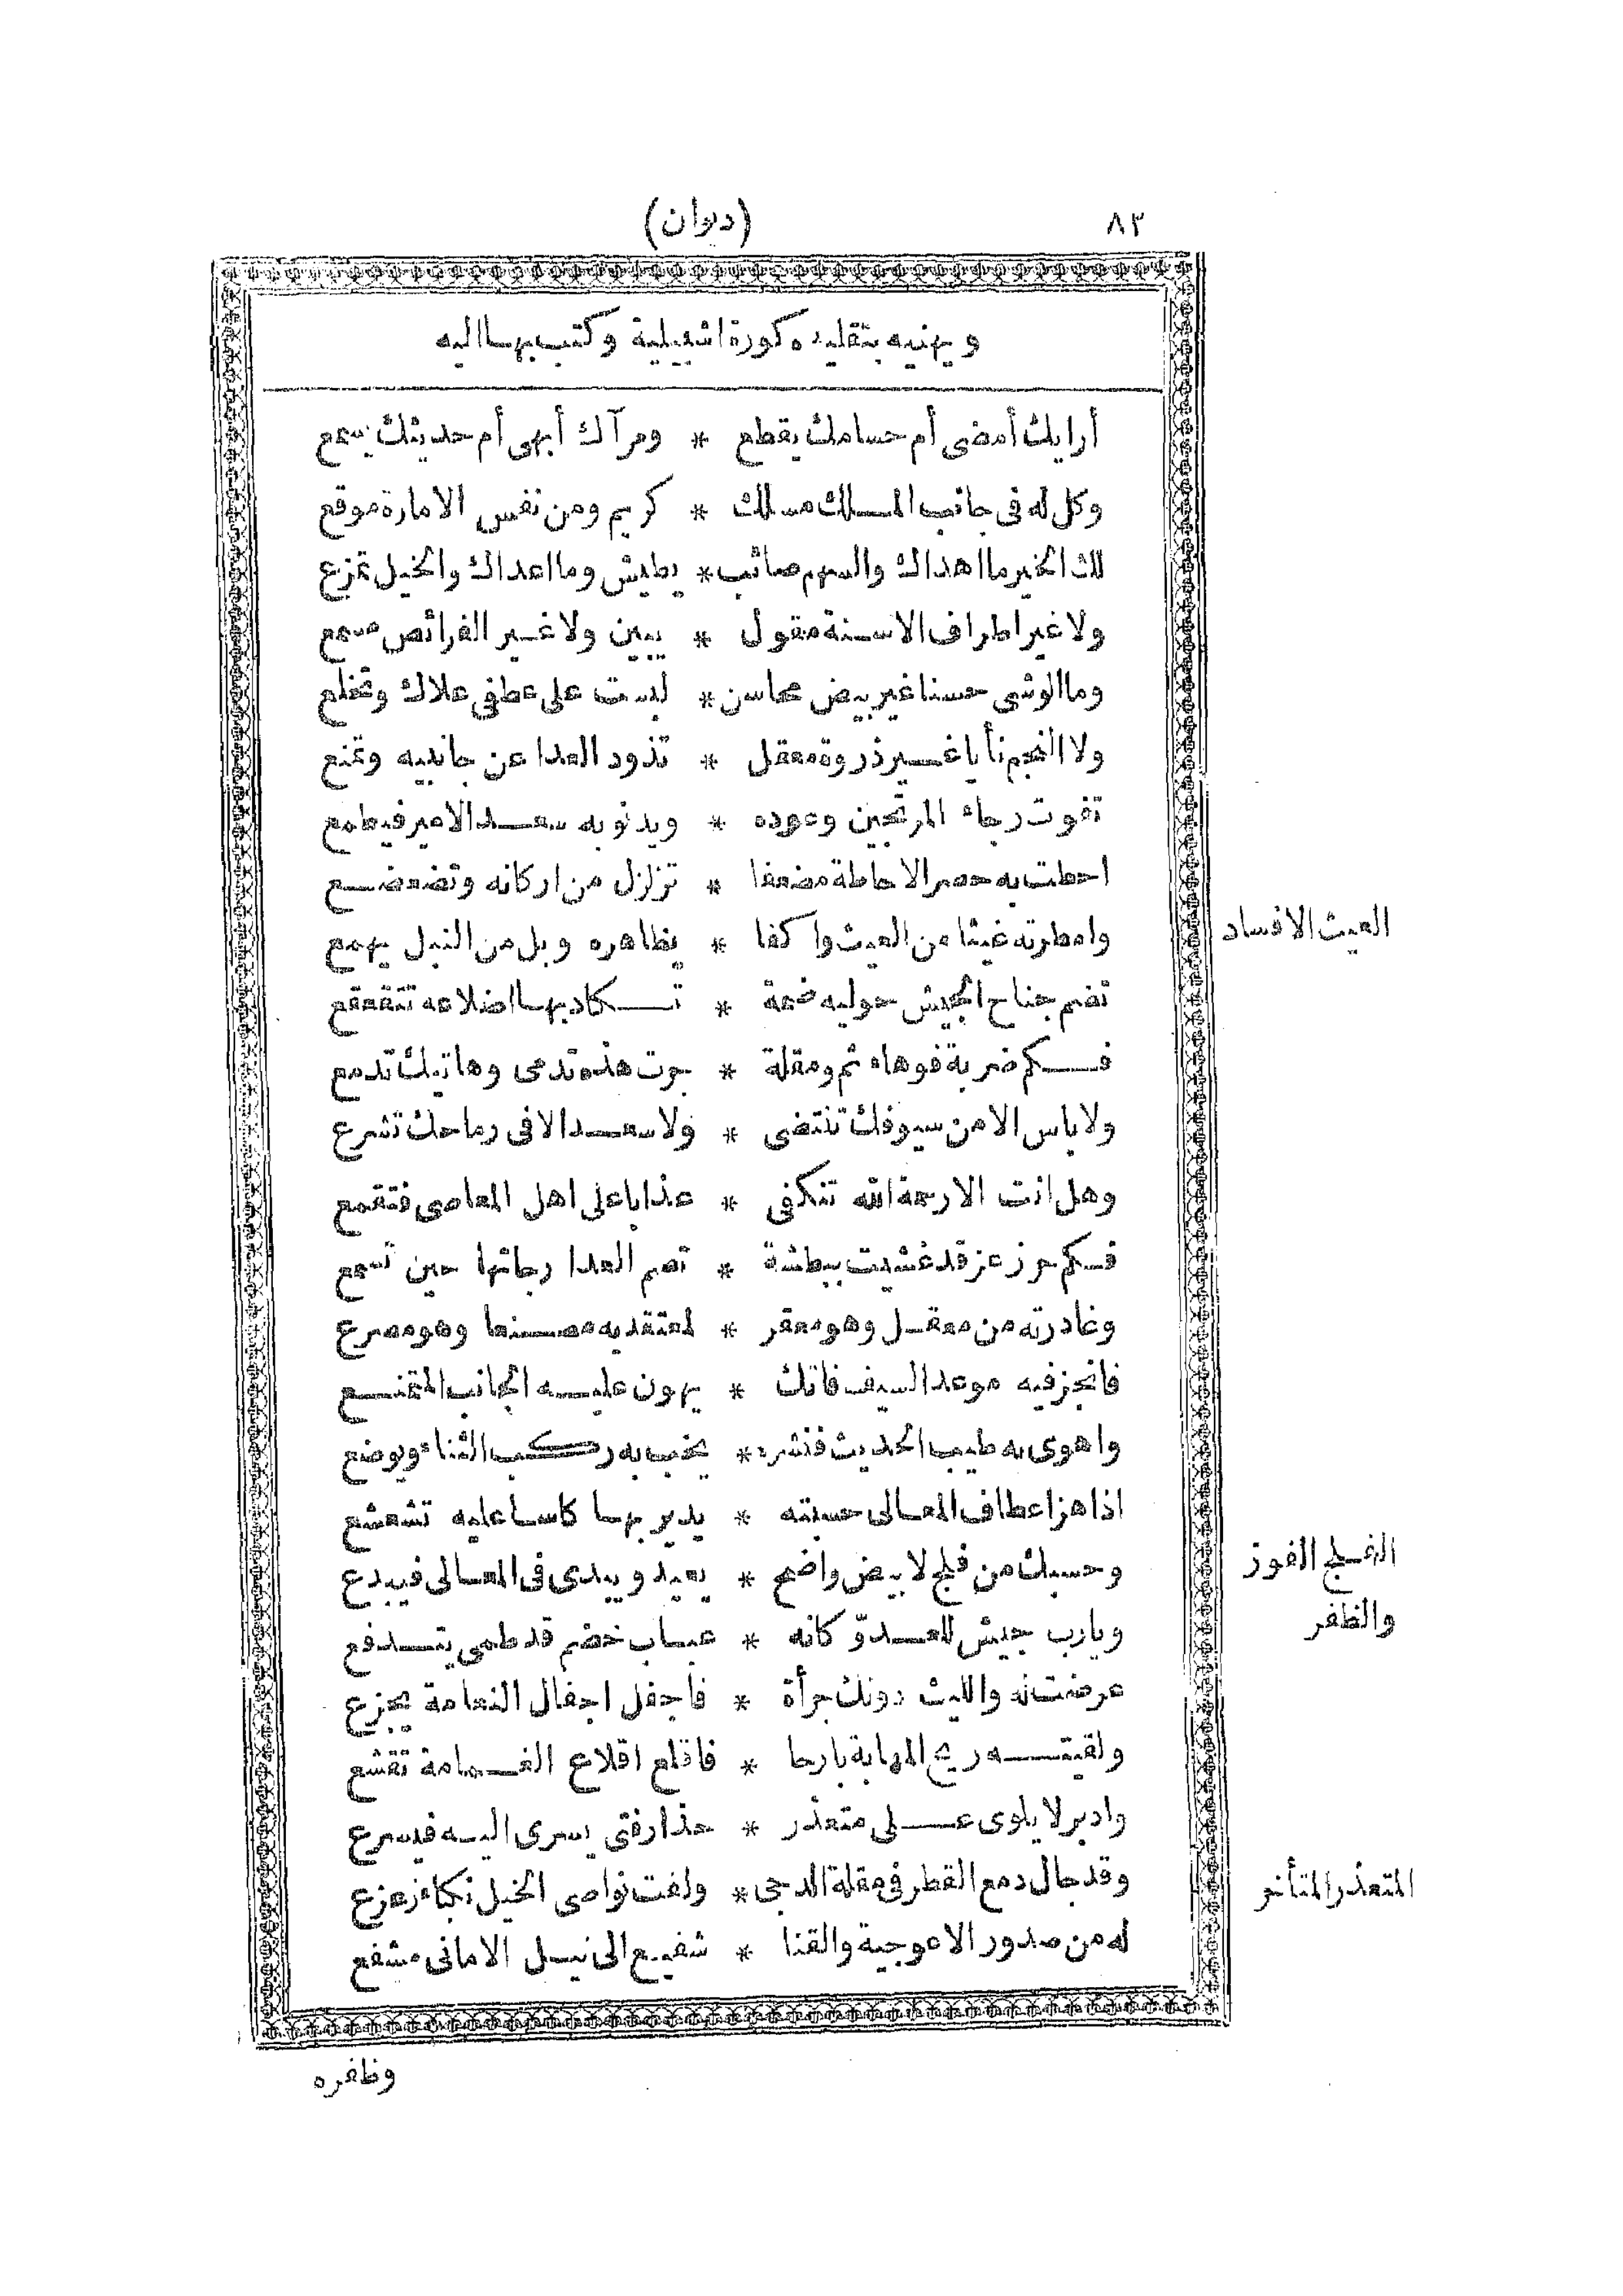 ٨٢
(ديوان)
ويهنيه بتقليده كورة اشبيلية وكتب بها اليه
أرايك أمضى أم حسامك يقطع * ومرآك أبهى أم حديثك يسمع
وكل له فى جانب الملك مسلك * كريم ومن نفس الامارة موقع
لك الخير ما اهداك والسهم صائب * يطيش وما اعداك والخيل تمزع
ولا غير اطراف الاسنة مقول * يبين ولا غير الفرائص مسمع
وما الوشى حسنا غير بيض محاسن * لبست على عطفى علاك وتخلع
ولا النجم نأيا غير ذروة معقل * تذود العدا عن جانبيه وتمنع
تفوت رجاء المرتجين وعوده * ويدنو به سعد الامير فيطمع
احطت به حصر الاحاطة مضعفا * تزلزل من اركانه وتضعضع
وامطرته غيثا من العيث واكفا * يظاهره وبل من النبل يهمع
العيث الافساد
تضم جناح الجيش حوليه ضمة * تكاد بها اضلاعه تتقعقع
فكم ضربة فوهاء ثم ومقلة * جرت هذه تدمى وهاتيك تدمع
ولا باس الا من سيوفك تنتضى * ولا سعد الا فى رماحك تشرع
وهل انت الا رحمة الله تنكفى * عذابا على اهل المعاصى فتقمع
فكم حرز عز قد غشيت ببطشة * تصم العدا رجاتها حين تسمع
وغادرته من معقل وهو معقر * لمعتقديه مصنعا وهو مصرع
فانجز فيه موعد السيف فاتك * يهون عليه الجانب المتمنع
واهوى به طيب الحديث فنشره * يخب به ركب الثناء ويوضع
اذا هز اعطاف المعالى حسبته * يدير بها كاسا عليه تشعشع
وحسبك من فلج لابيض واضح * يعيد ويبدى فى المعالى فيبدع
الفلج الفوز
والظفر
ويارب جيش للعدوّ كانه * عباب خضم قد طمى يتدفع
عرضت له والليث دونك جرأة * فاجفل اجفال النعامة يجزع
ولقيته ريح المهابة بارحا * فاقلع اقلاع الغمامة تقشع
وادبر لا يلوى على متعذر * حذار فتى يسرى اليه فيسرع
وقد جال دمع القطر فى مقلة الدجى * ولفت نواصى الخيل نكباء زعزع
المتعذر المتأخر
له من صدور الاعوجية والقنا * شفيع الى نيل الامانى مشفع
وظفره